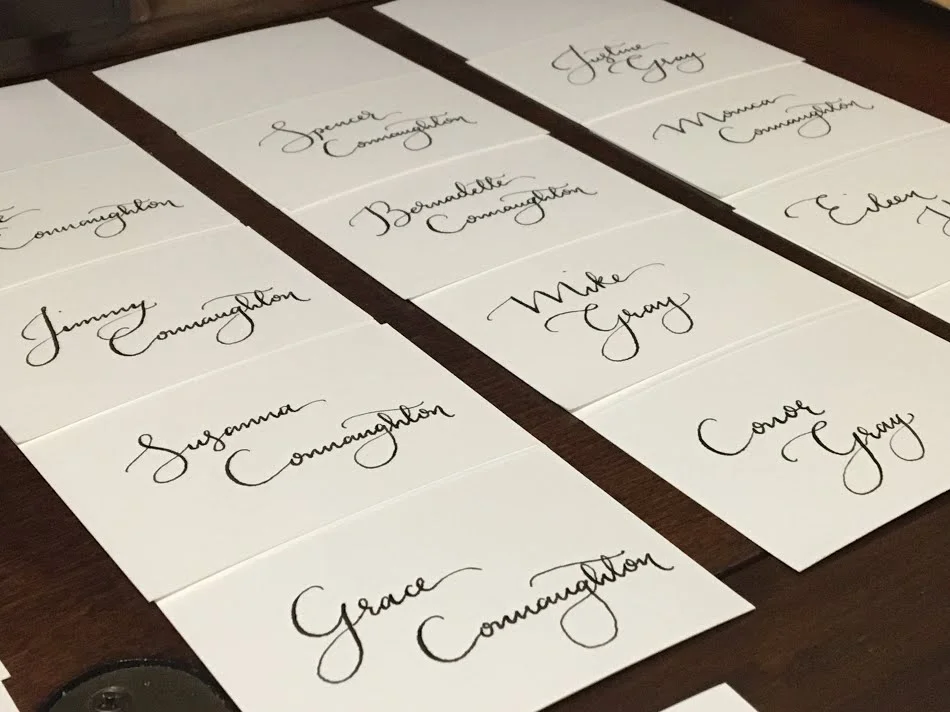 Connaughton
Jimmy Connaughton
Susanna
Connaughton
Grace
Connaughton
Spencer
Connaughton
Bernadette
Connaughton
Mike
Gray
Conor
Gray
Justine
Gray
Monica
Connaughton
Eileen